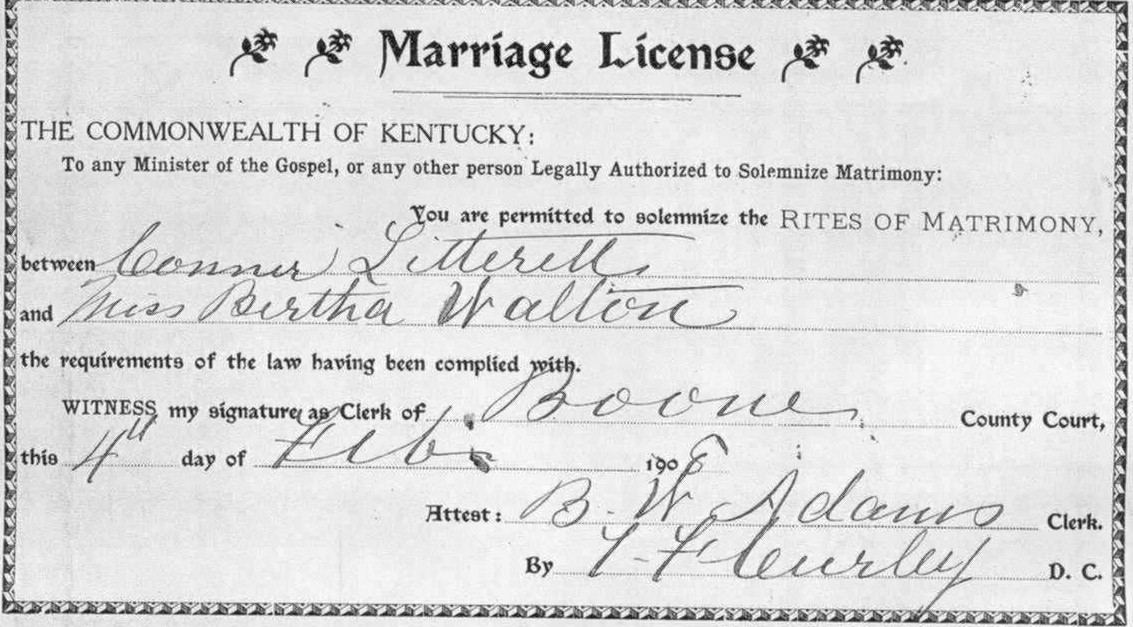 Marriage License
THE COMMONWEALTH OF KENTUCKY:
To any Minister of the Gospel, or any other person Legally Authorized to Solemnize Matrimony:
You are permitted to solemnize the RITES OF MATRIMONY,
between Conner Litterell
and Miss Bertha Walton
the requirements of the law having been complied with.
WITNESS my signature as Clerk of Boone County Court,
this 4th day of Feb. 1908
Attest: B. W. Adams Clerk.
By Curley D. C.